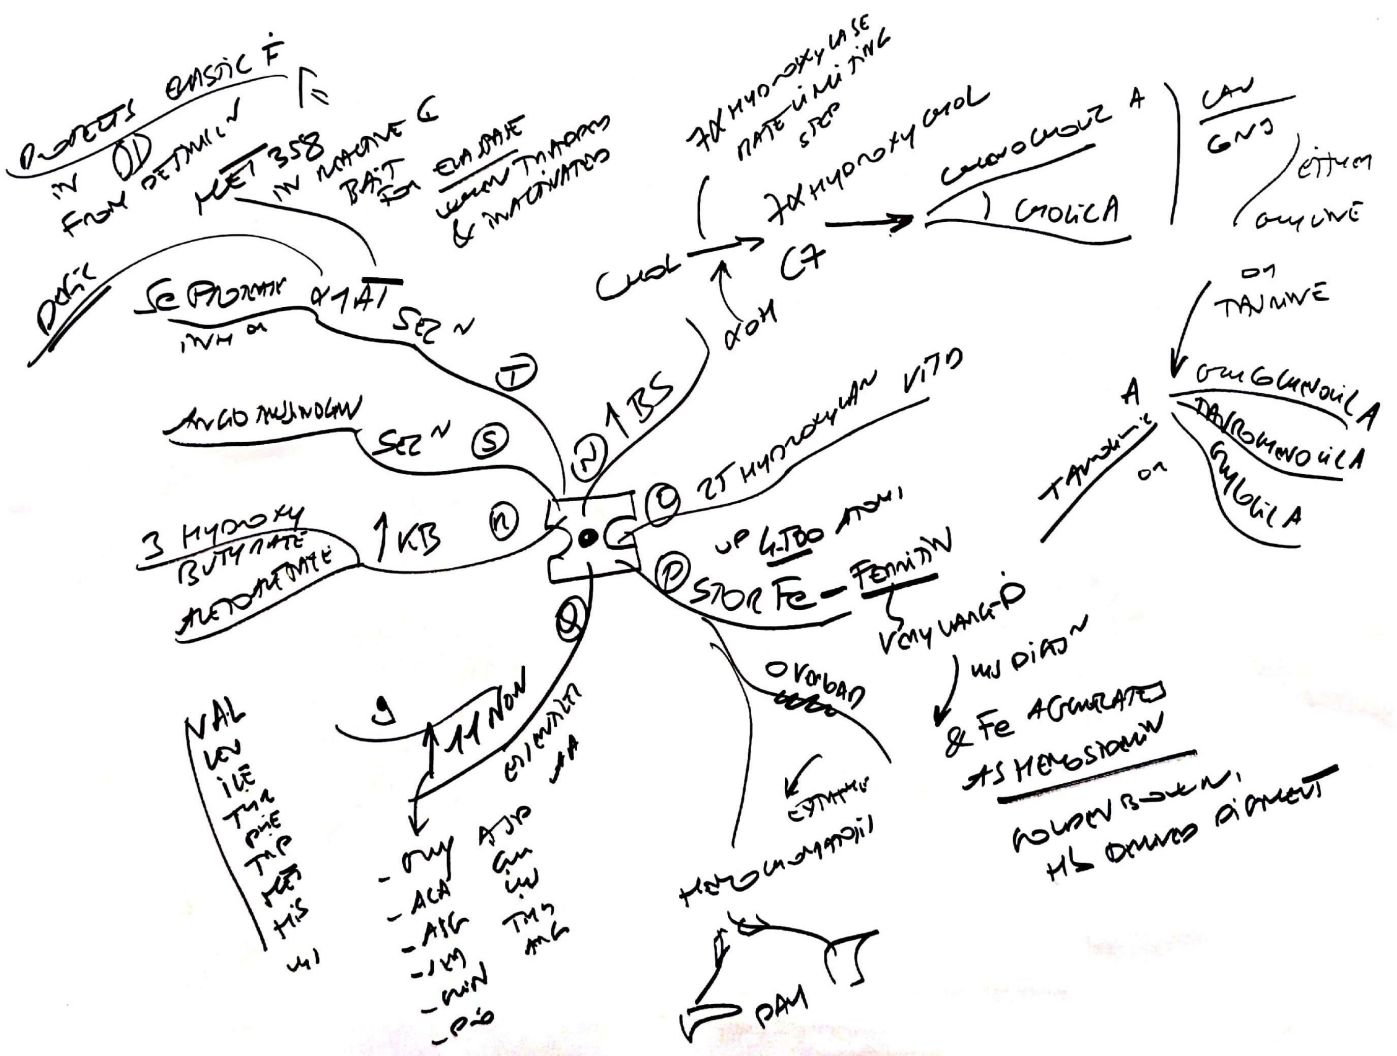 PROTECTS ELASTIC F
IN
FROM DESTRUC N
MET 358
IN REACTIVE C
BAIT
FOR ELASTASE
WHEN TRAPPED
& INACTIVATED
DEFIC
SE PROTEASE
INH OR
α1 AT
SEZ N
T
ANGIOTENSINOGEN
SEZ N
S
3 HYDROXY
BUTYRATE
ACETOACETATE
↑KB
R
N
↑BS
7α HYDROXYLASE
RATE LIMITING
STEP
CHOL
7α HYDROXY CHOL
C7
αOH
A
CHOLIC A
CONJ
EITHER
GLYCINE
OR
TAURINE
A
GLYCOCHENOCHOLIC A
TAUROCHENOCHOLIC A
GLYCOLIC A
TAUROCHOLIC
OR
O
25 HYDROXYLAN VIT D
UP 4500 ATOMS
P
STOR Fe - FERRITIN
VERY LARGE P
& Fe AGGREGATES
AS HEMOSIDERIN
GOLDEN BROWN,
Hb DERIVED PIGMENT
OVERLOAD
EXTREME
HEMOCHROMATOSIS
PAN
Q
9
↑ 11 NON
ESSENTIAL
AA
VAL
LEU
ILE
THR
PHE
TRP
MET
HIS
LYS
- GLY
- ALA
- ASG
- SER
- GLN
- PRO
ASP
GLU
CYS
TYR
ARG